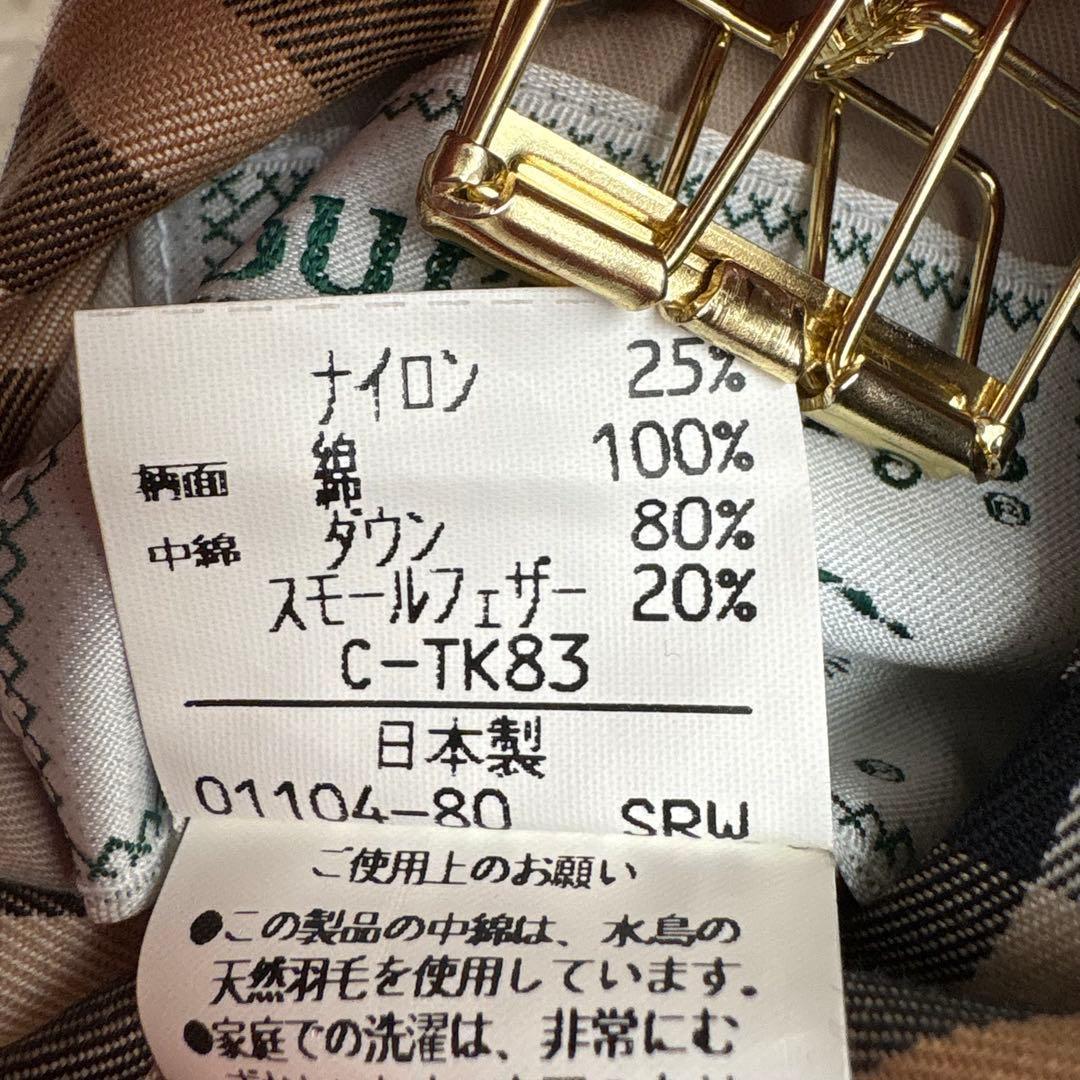 ナイロン 25%
柄面 綿 100%
中綿 ダウン 80%
スモールフェザー 20%
C-TK83
日本製
01104-80 SRW
ご使用上のお願い
●この製品の中綿は、水鳥の
天然羽毛を使用しています。
●家庭での洗濯は、非常にむ